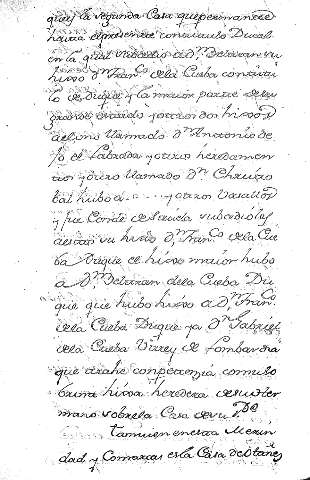 que es la segunda Casa que permanece
hasta el presente con titulo Ducal
en la qual subcedio a Dn. Beltran su
hixo Dn. Franco. de la Cueba con titu
lo de Duque y la maior parte de su
grande estado y otros dos hixos
al uno llamado Dn. Antonio de
jo el y otros heredamen
tos y otro llamado Dn. Christo
bal hubo a y otros Vasallos
y fue Conde de subcediole
a este su hixo Dn. Franco. de la Cue
ba Duque el hixo maior hubo
a Dn. Beltran de la Cueba Du
que que hubo hixos a Dn. Franco.
de la Cueba Duque y a Dn. Gabriel
de la Cueba Virrey de Lombardia
que trahe competenzia como su
hixa heredera de su her
mano sobre la Casa de su Pde
tamvien en esta Merin
dad, y Comarcas es la Casa de Otañes